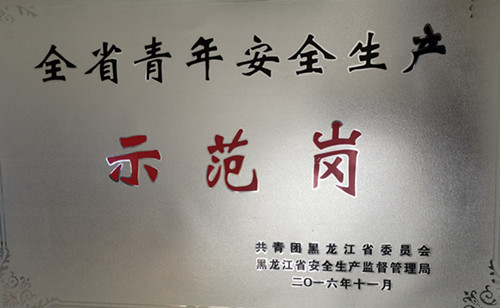 全省青年安全生产
示范岗
共青团黑龙江省委员会
黑龙江省安全生产监督管理局
二〇一六年十一月